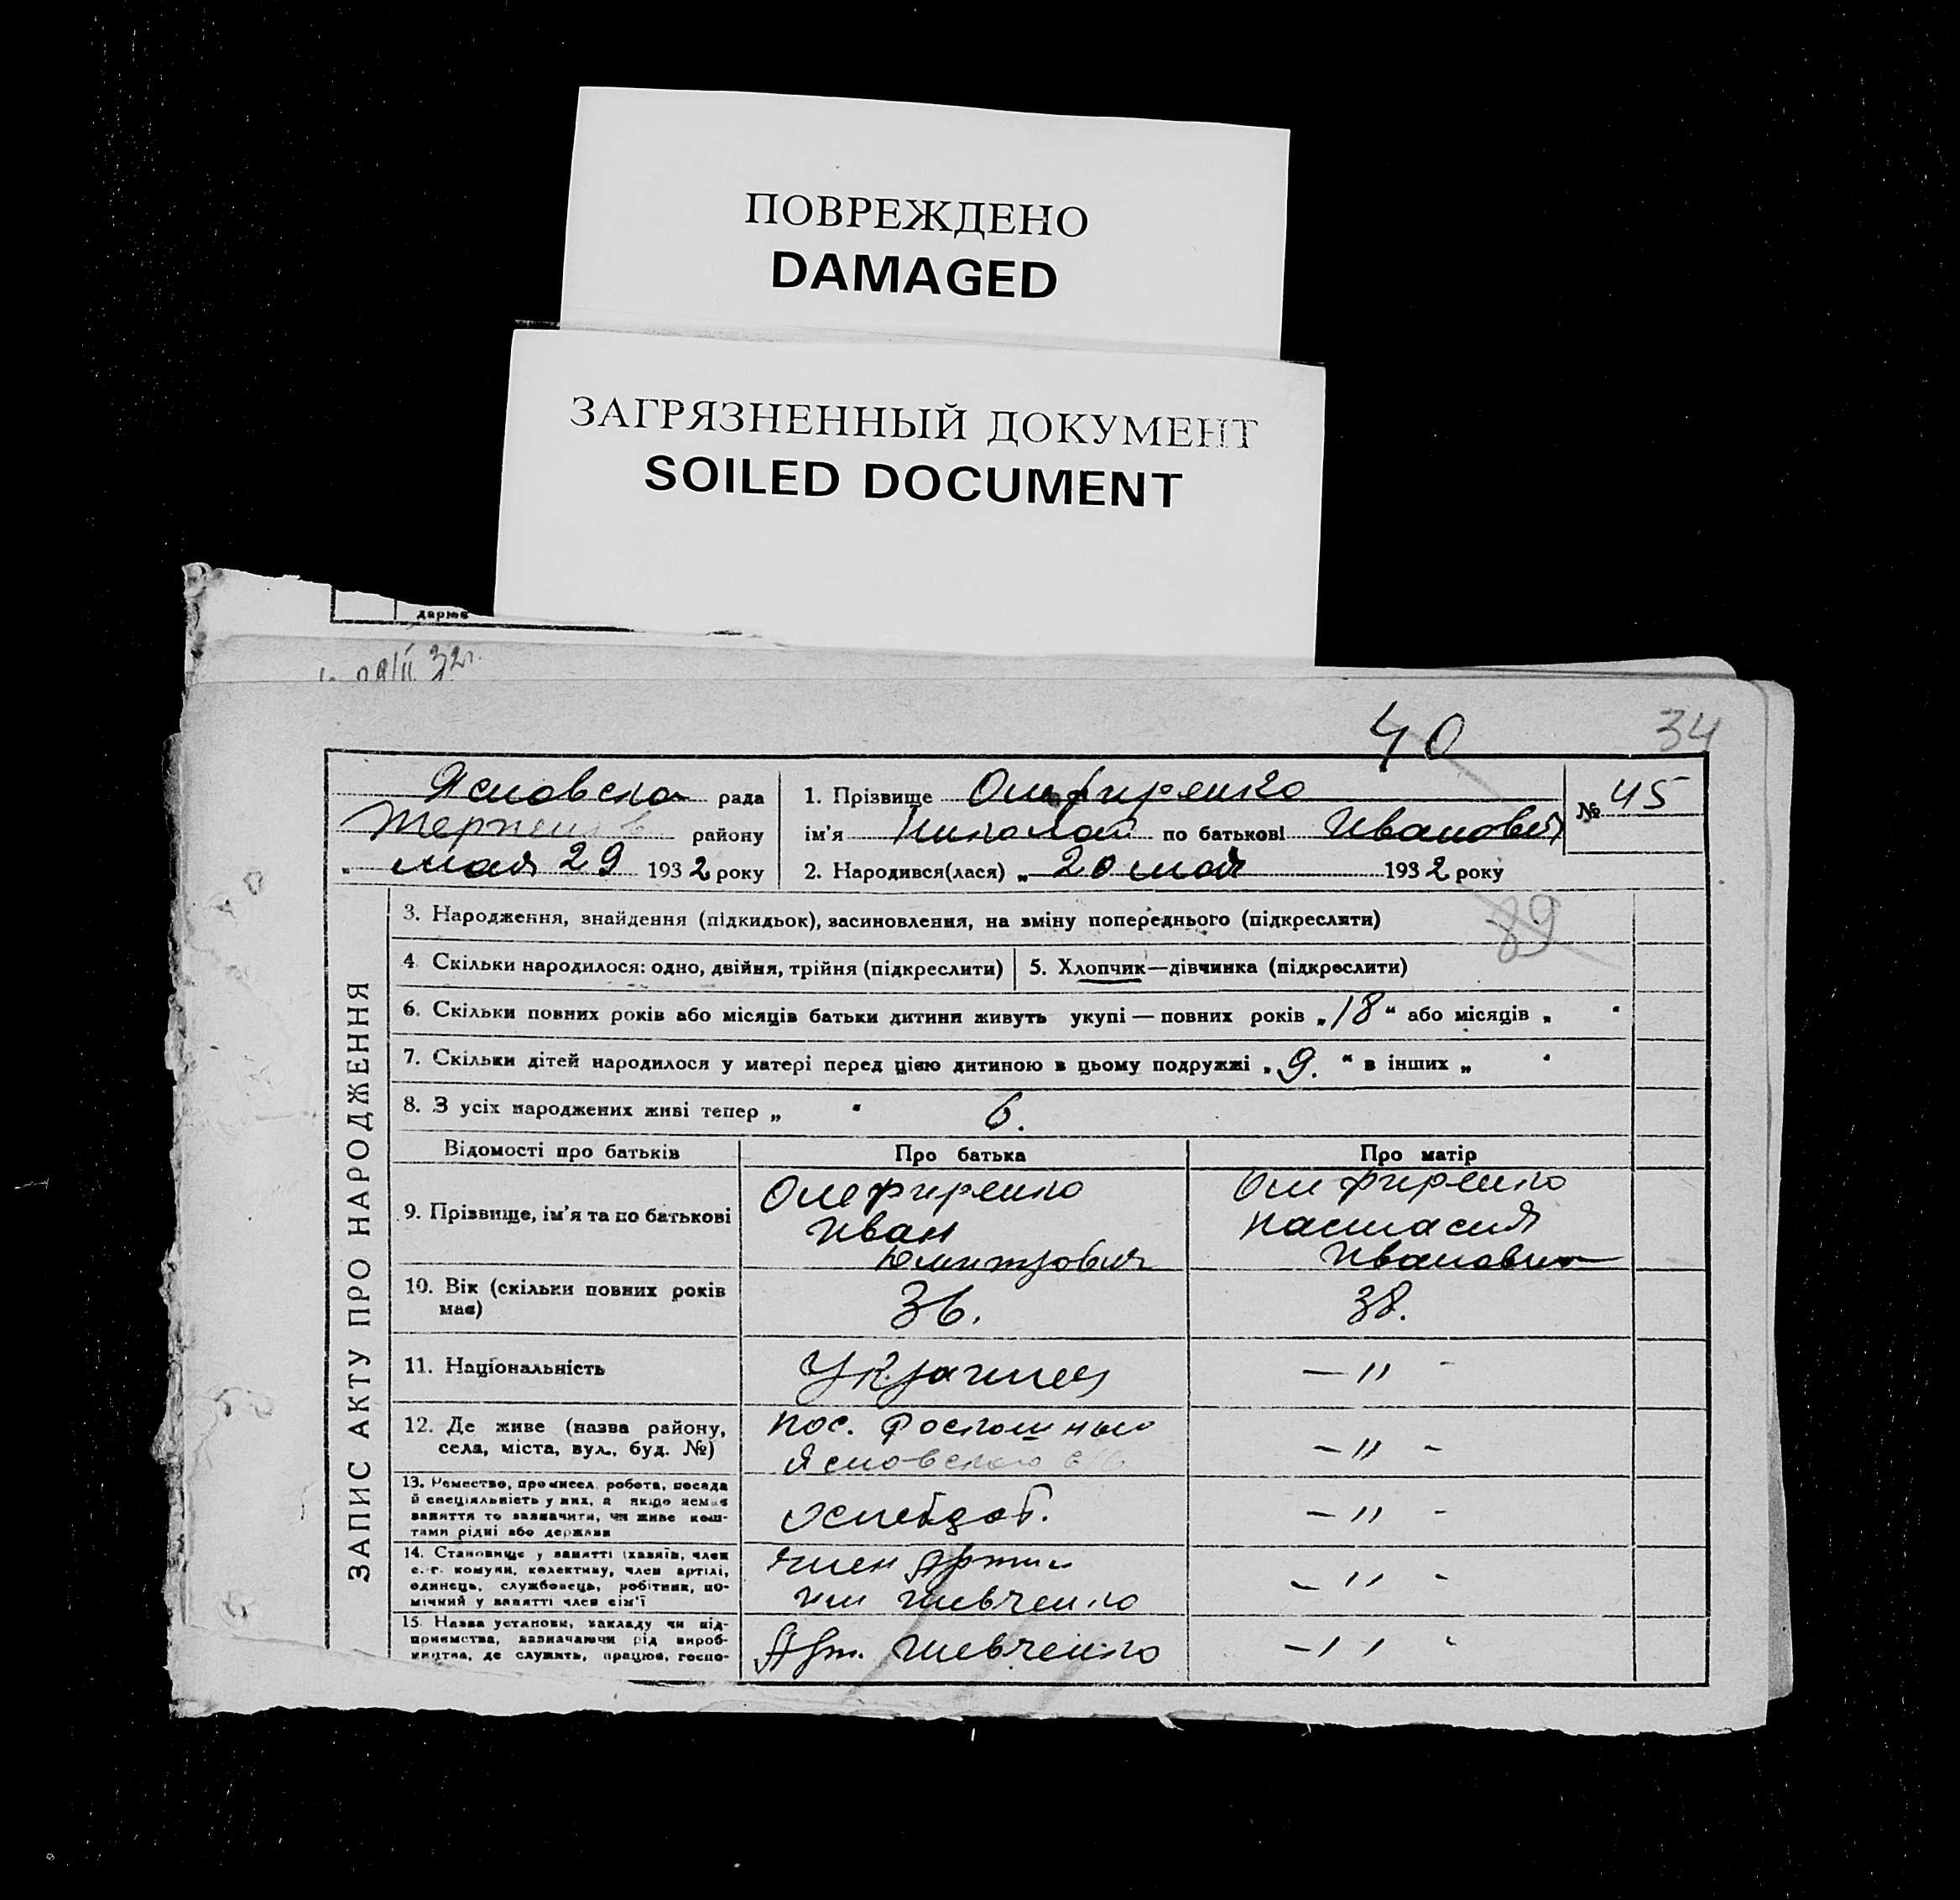 ПОВРЕЖДЕНО
DAMAGED
ЗАГРЯЗНЕННЫЙ ДОКУМЕНТ
SOILED DOCUMENT
дарює
29/II 32г.
40
34
Ясновска рада
району
мая 29 1932 року
1. Прізвище Олефиренко
ім'я Николай по батькові Иванович
№ 45
2. Народився(лася) „ 20 мая 1932 року
89
ЗАПИС АКТУ ПРО НАРОДЖЕННЯ
3. Народження, знайдення (підкидьок), засиновлення, на зміну попереднього (підкреслити)
4. Скільки народилося: одно, двійня, трійня (підкреслити)
5. Хлопчик—дівчинка (підкреслити)
6. Скільки повних років або місяців батьки дитини живуть укупі — повних років „18“ або місяців „ "
7. Скільки дітей народилося у матері перед цією дитиною в цьому подружжі „9.“ в інших „ "
8. З усіх народжених живі тепер „ " 6.
Відомості про батьків Про батька Про матір
9. Прізвище, ім'я та по батькові
Олефиренко
Иван
Дмитрович
Олефиренко
Настасия
Ивановна
10. Вік (скільки повних років має)
36.
38.
11. Національність
Украинец
— " -
12. Де живе (назва району,
села, міста, вул., буд. №)
пос. Роскошный
Ясновского
— " -
13. Ремество, промисел, робота, посада
й спеціяльність у них, а якщо немає
заняття то зазначити, чи живе кош-
тами рідні або держави
— " -
14. Становище у занятті (хазяїн, член
с.-г. комуни, колективу, член артілі,
одинець, службовець, робітник, по-
мічний у занятті член сім'ї
член Артили
им Шевченко
— " -
15. Назва установи, закладу чи під-
приємства, зазначаючи рід вироб-
ництва, де служить, працює, госпо-
Арт. Шевченко
— " -